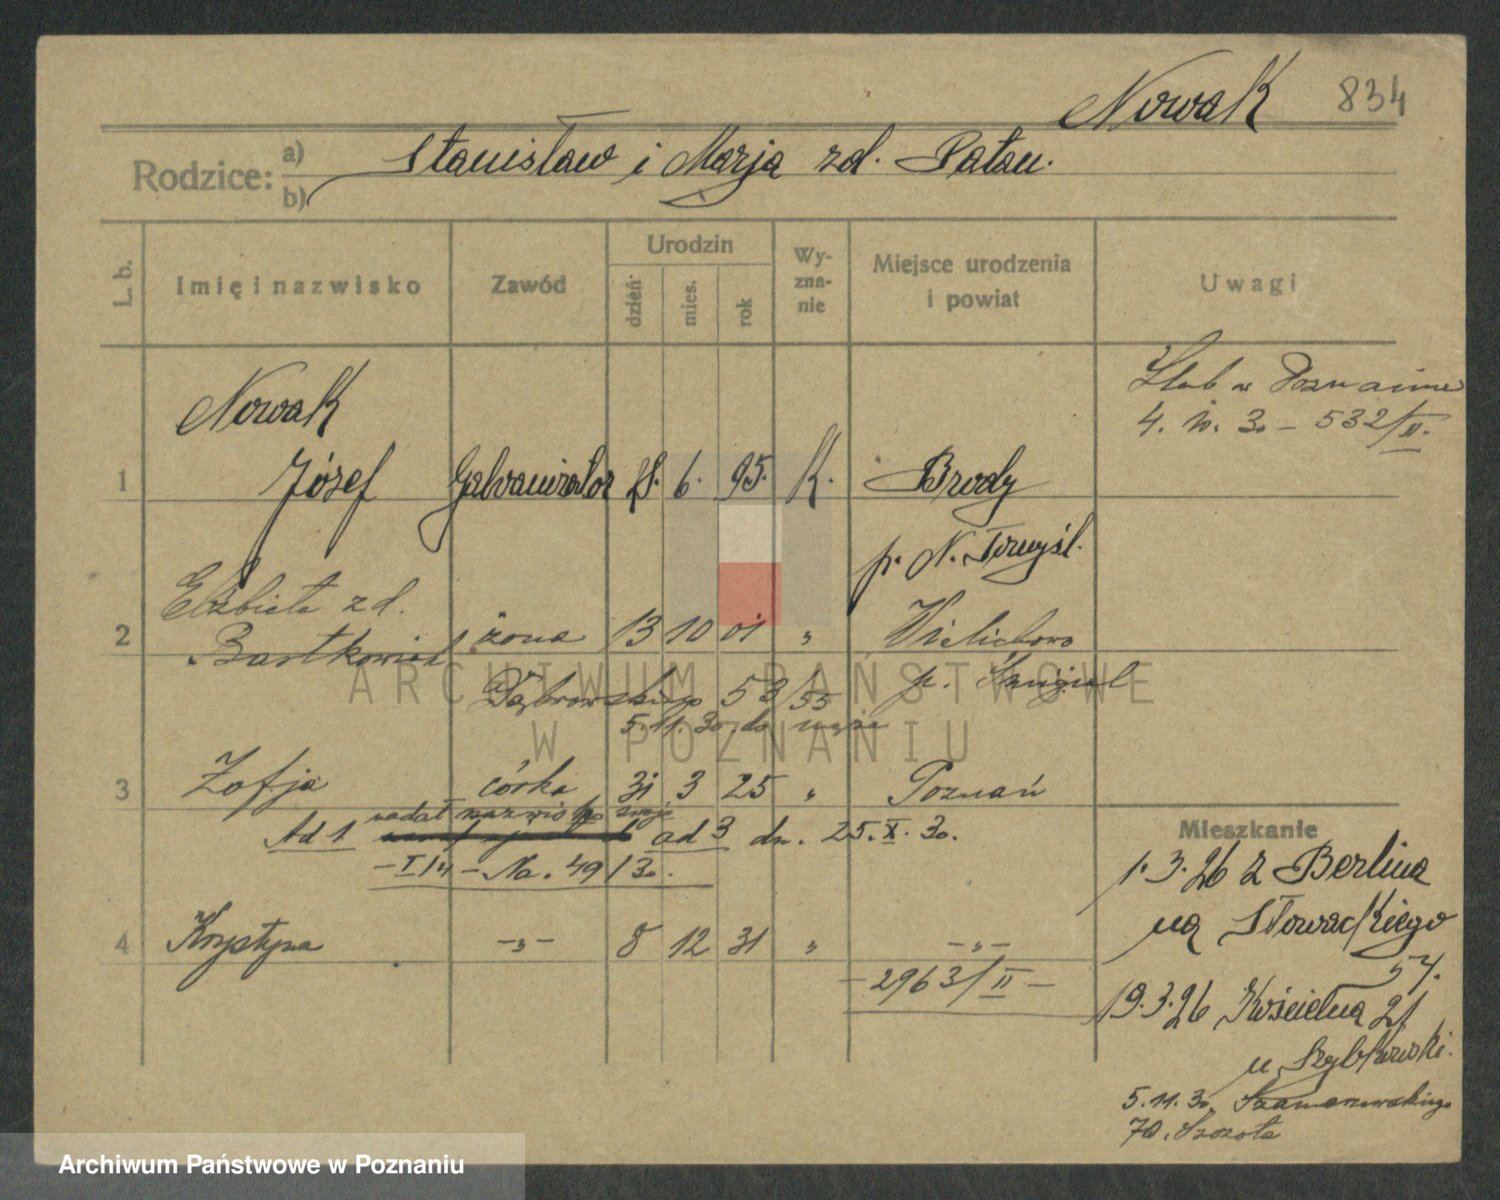 Nowak 834
Rodzice: a) b) Stanisław i Marja zd. Pałan.
L. b. Imię i nazwisko Zawód Urodzin dzień mies. rok Wy-zna-nie Miejsce urodzenia i powiat Uwagi
Ślub w Poznaniu
4. 10. 30 – 532/II.
Nowak
1 Józef Galwanizator 18. 6. 95. K. Brody
p. N. Tomyśl.
Elżbieta zd.
2 Bartkowiak żona 13 10 01 " Wielichowo
p. Śmigiel
Dąbrowskiego 53/55
5.11.30 do męża
3 Zofja córka 31 3 25 " Poznań
nadał nazwisko swoje
Ad 1 ad 3 dn. 25. X. 30.
– I/4 – No. 49/30.
4 Krystyna –"– 8 12 31 " –"–
– 2963/II –
Mieszkanie
1.3.26 z Berlina
na Słowackiego
57.
19.3.26 Kościelna 21
u Szybkowski.
5.11.30 Szamarzewskiego
70.
ARCHIWUM PAŃSTWOWE
W POZNANIU
Archiwum Państwowe w Poznaniu